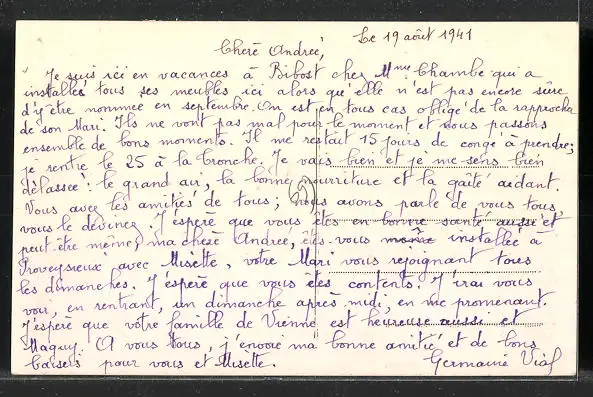 Le 19 août 1941
Cherè Andreé,
Je suis ici en vacances à Bibost chez Mme Chambe qui a
installés tous ses meubles ici alors qu'elle n'est pas encore sûre
d'y être nommeé en septembre. On est en tous cas obligé de la rapprocher
de son Mari. Ils ne vont pas mal pour le moment et nous passons
ensemble de bons moments. Il me restait 15 jours de congé à prendre;
je rentre le 25 à la Tronche. Je vais bien et je me sens bien
délasseé: le grand air, la bonne nourriture et la gaîté aidant.
Vous avez les amitiés de tous; nous avons parlé de vous tous
vous le devinez. J'éspère que vous êtes en bonne santé aussi et
peut-être même, ma cherè Andreé, êtes-vous installeé à
Proveysieux avec Misette, votre Mari vous rejoignant tous
les dimanches. J'éspère que vous êtes contents. J'irai vous
voir, en rentrant, un dimanche après-midi, en me promenant.
J'éspère que votre famille de Vienne est heureuse aussi et
Maguy. A vous tous, j'envoie ma bonne amitié et de bons
baisers pour vous et Misette. Germaine Vial